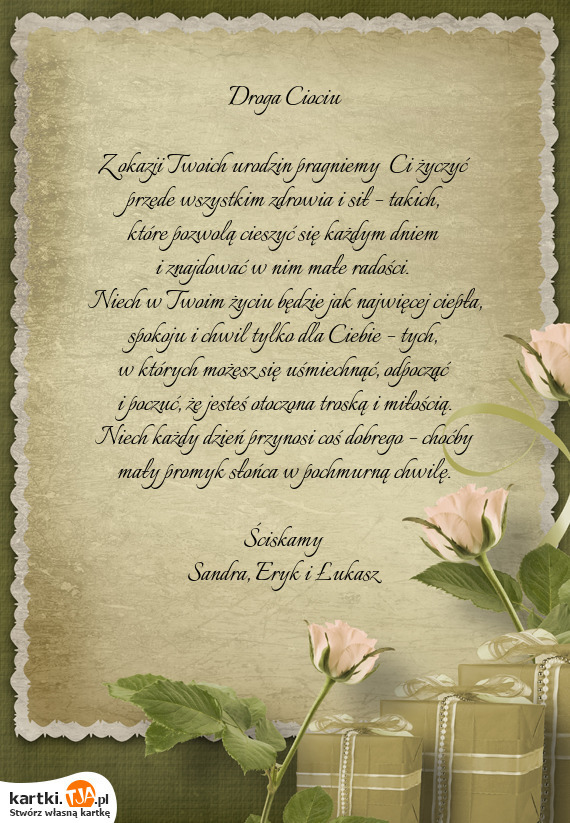 Droga Ciociu
Z okazji Twoich urodzin pragniemy Ci życzyć
przede wszystkim zdrowia i sił – takich,
które pozwolą cieszyć się każdym dniem
i znajdować w nim małe radości.
Niech w Twoim życiu będzie jak najwięcej ciepła,
spokoju i chwil tylko dla Ciebie – tych,
w których możesz się uśmiechnąć, odpocząć
i poczuć, że jesteś otoczona troską i miłością.
Niech każdy dzień przynosi coś dobrego – choćby
mały promyk słońca w pochmurną chwilę.
Ściskamy
Sandra, Eryk i Łukasz
kartki.TJA.pl
Stwórz własną kartkę